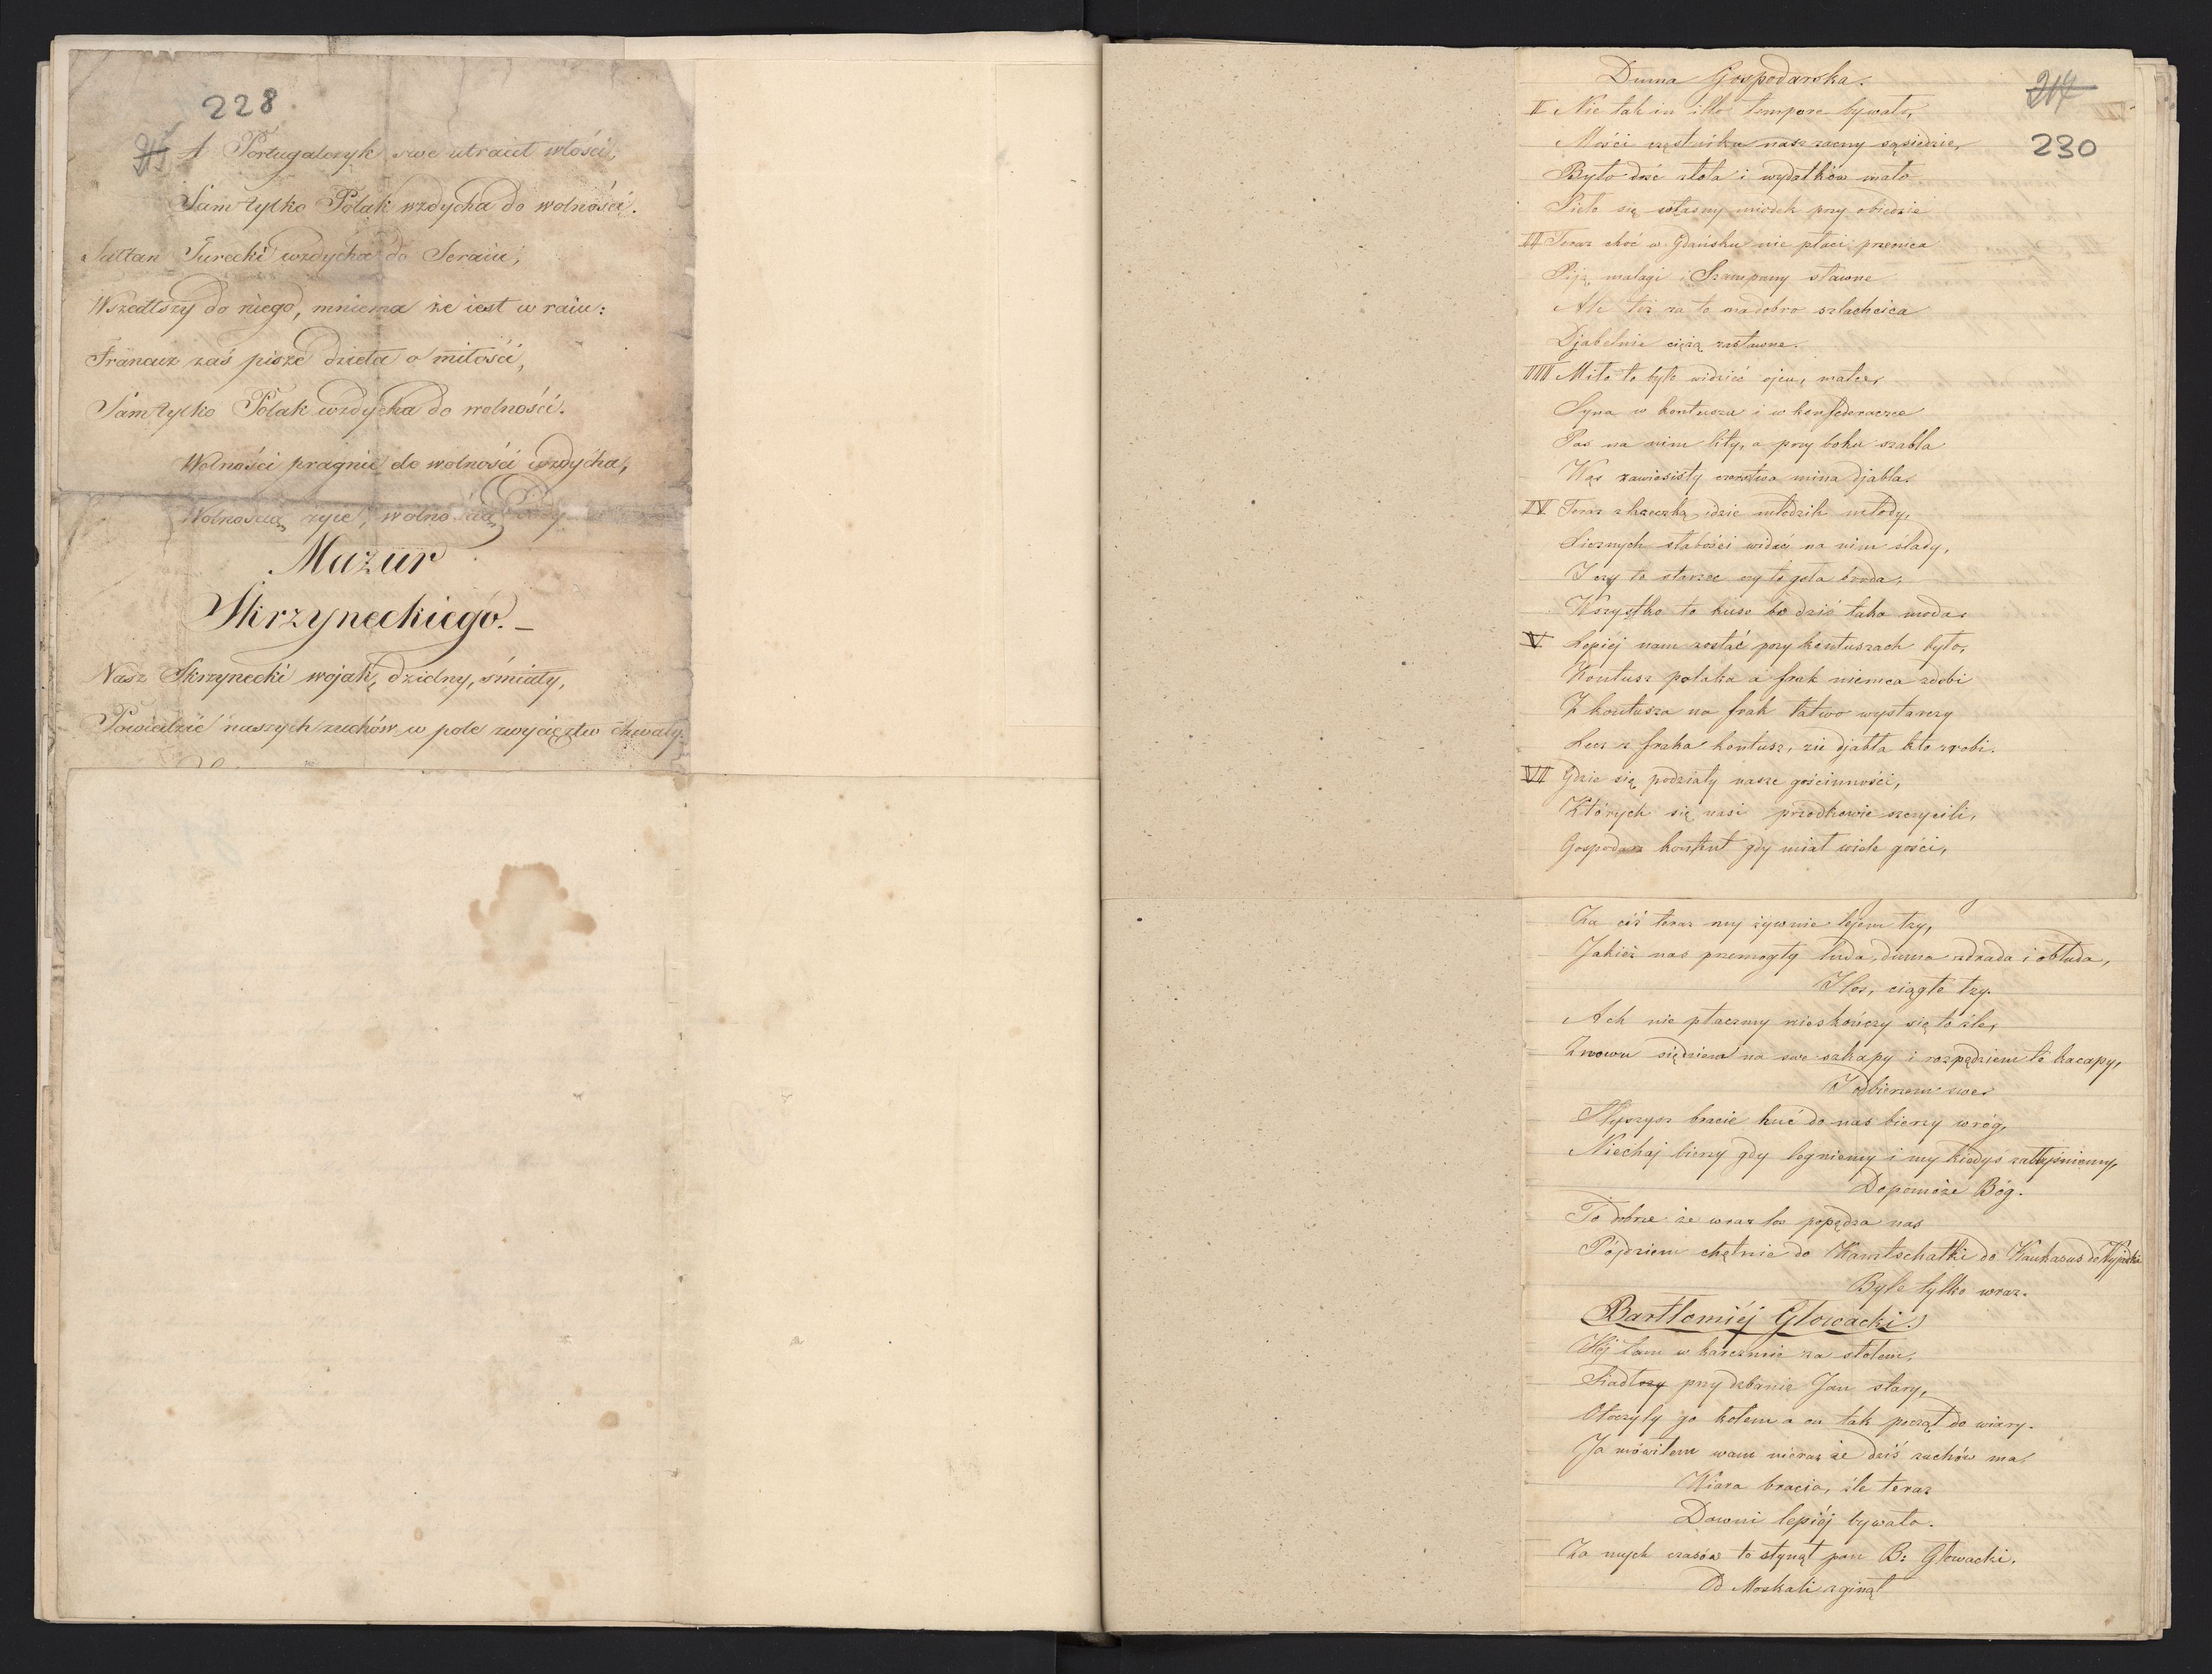 228
215
A Portugalczyk swe utracił włości,
Sam tylko Polak wzdycha do wolności.
Sułtan Turecki wzdycha do Seraiu,
Wszedłszy do niego, mniema że iest w raiu:
Francuz zaś pisze dzieła o miłości,
Sam tylko Polak wzdycha do wolności.
Wolności pragnie do wolności wzdycha,
Wolnością żyie, wolnością
Mazur
Skrzyneckiego.
Nasz Skrzynecki wojak, dzielny, śmiały,
Powiedzie naszych zuchów w pole zwycięztw chwały.
Duma Gospodarska.
214
230
I Nie tak in illo tempore bywało,
Mości cześniku nasz zacny sąsiedzie,
Było dość złota i wydatków mało
Piło się własny miodek przy obiedzie
II Teraz choć w Gdańsku nie płaci przenica
Piją malagi i Szampany sławne
Ale też za to na dobro szlachcica
Djabelnie ciężą zastawne.
III Miło to było widzieć ojcu, matce,
Syna w kontuszu i w konfederacree
Pas na nim lity, a przy boku szabla
Wąs zawiesisty czerstwa mina djabla.
IV Teraz z kaczką idzie młodzik młody,
Licznych słabości widać na nim ślady,
I czy to starzec czy to goła broda,
Wszystko to kuso bo dziś taka moda.
V Lepiéj nam zostać przy kontuszach było,
Kontusz polaka a frak niemca zdobi
Z kontusza na frak łatwo wystarczy
Lecz z fraka kontusz, zie djabła kto zrobi.
VI Gdzie się podziały nasze gościnności,
Których się nasi przodkowie szczycili,
Gospodarz kontent gdy miał wiele gości,
Za cóż teraz my żywnie lejem łzy,
Jakież nas przemogły luda, duma zdrada i obłuda,
I los, ciągłe łzy.
Ach nie płaczmy nieskończy się to źle,
Znowu siędziem na swe szkapy i rozpędziem te kacapy,
I odbierzem swe.
Słyszysz bracie huć do nas bierzy wróg,
Niechaj bierzy gdy legniemy i my kiedyś zabłyśniemy,
Dopomoże Bóg.
To dobrze że wraz los popędza nas
Pójdziem chętnie do Kamtschatki do Kaukazus do
Byle tylko wraz.
Bartłomiéj Głowacki.
Héj tam w karczmie za stołem,
Siadłszy przy dzbanie Jan stary,
Otoczyły go kołem a on tak począł do wiary.
Ja mówiłem wam nieraz że dziś zuchów ma,
Wiara bracia, źle teraz
Dawni lepiéj bywało.
Za mych czasów to słynął pan B: Głowacki.
Od Moskali zginął